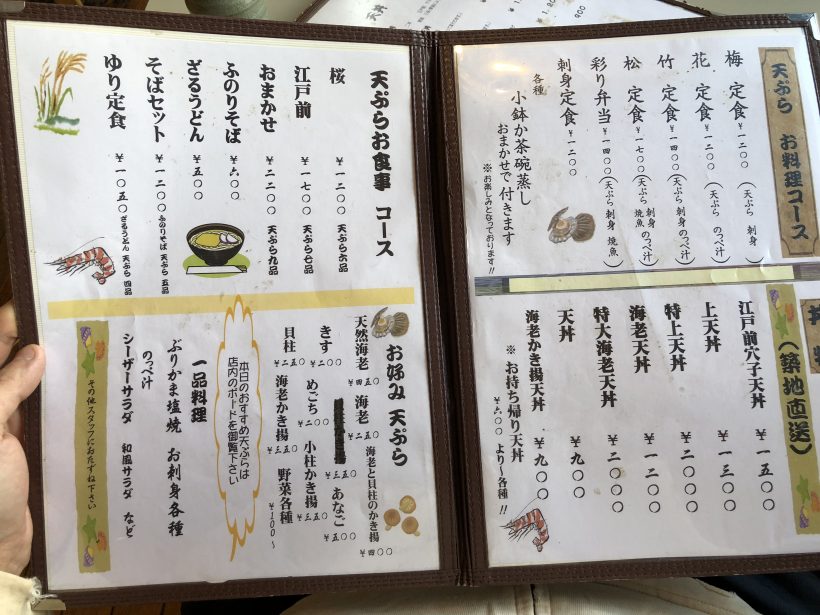 天ぷら お料理コース
梅 定食 ￥一二〇〇 (天ぷら 刺身)
花 定食 ￥一二〇〇 (天ぷら のっぺ汁)
竹 定食 ￥一四〇〇 (天ぷら 刺身 のっぺ汁)
松 定食 ￥一七〇〇 (天ぷら 刺身 のっぺ汁 焼魚)
彩り弁当 ￥一四〇〇 (天ぷら 刺身 焼魚)
刺身定食 ￥一二〇〇
各種
小鉢か茶碗蒸し
おまかせで 付きます
※お楽しみとなっております!!
(築地直送)
江戸前穴子天丼 ￥一五〇〇
上天丼 ￥一三〇〇
特上天丼 ￥二〇〇〇
海老天丼 ￥一二〇〇
特大海老天丼 ￥二〇〇〇
天丼 ￥九〇〇
海老かき揚天丼 ￥九〇〇
※ お持ち帰り天丼
￥六〇〇 より～各種!!
天ぷらお食事 コース
桜 ￥一二〇〇 天ぷら六品
江戸前 ￥一七〇〇 天ぷら七品
おまかせ ￥二二〇〇 天ぷら九品
ふのりそば ￥六〇〇
ざるうどん ￥五〇〇
そばセット ￥一二〇〇 ふのりそば 天ぷら 五品
ゆり定食 ￥一〇五〇 ざるうどん 天ぷら 四品
お好み 天ぷら
天然海老 ￥四五〇
海老 ￥二五〇
海老と貝柱のかき揚 ￥四〇〇
きす ￥二〇〇
めごち ￥二〇〇
￥三五〇
あなご ￥五〇〇
貝柱 ￥二五〇
海老かき揚 ￥三五〇
小柱かき揚 ￥三五〇
野菜各種 ￥100～
本日のおすすめ天ぷらは
店内のボードを御覧下さい
一品料理
ぶりかま塩焼 お刺身各種
のっぺ汁
シーザーサラダ 和風サラダ など
その他スタッフにおたずね下さい